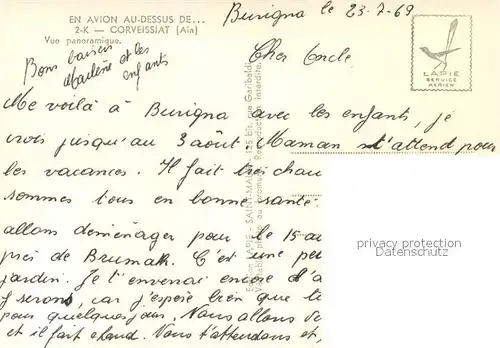 EN AVION AU-DESSUS DE...
2-K — CORVEISSIAT (Ain)
Vue panoramique.
Burigna le 23-7-69
Bons baisers
Marlène et les
enfants
Cher oncle
LAPIE
SERVICE
AERIEN
Me voilà à Burigna avec les enfants, je
crois jusqu'au 3 août. Maman t'attend pour
les vacances. Il fait très chau
sommes tous en bonne santé
allons deménager pour le 15 au
près de Brumath. C'est une pet
jardin. Je t'envenai encore d'a
y seront, car j'espère bien que ti
pour quelques jours. Nous allons
et il fait chaud. Nous t'attendons et,
LAPIE - SAINT-MAUR
25 bis, rue Garibaldi
Véritable photo au bromure. Reproduction interdite.
privacy protection
Datenschutz